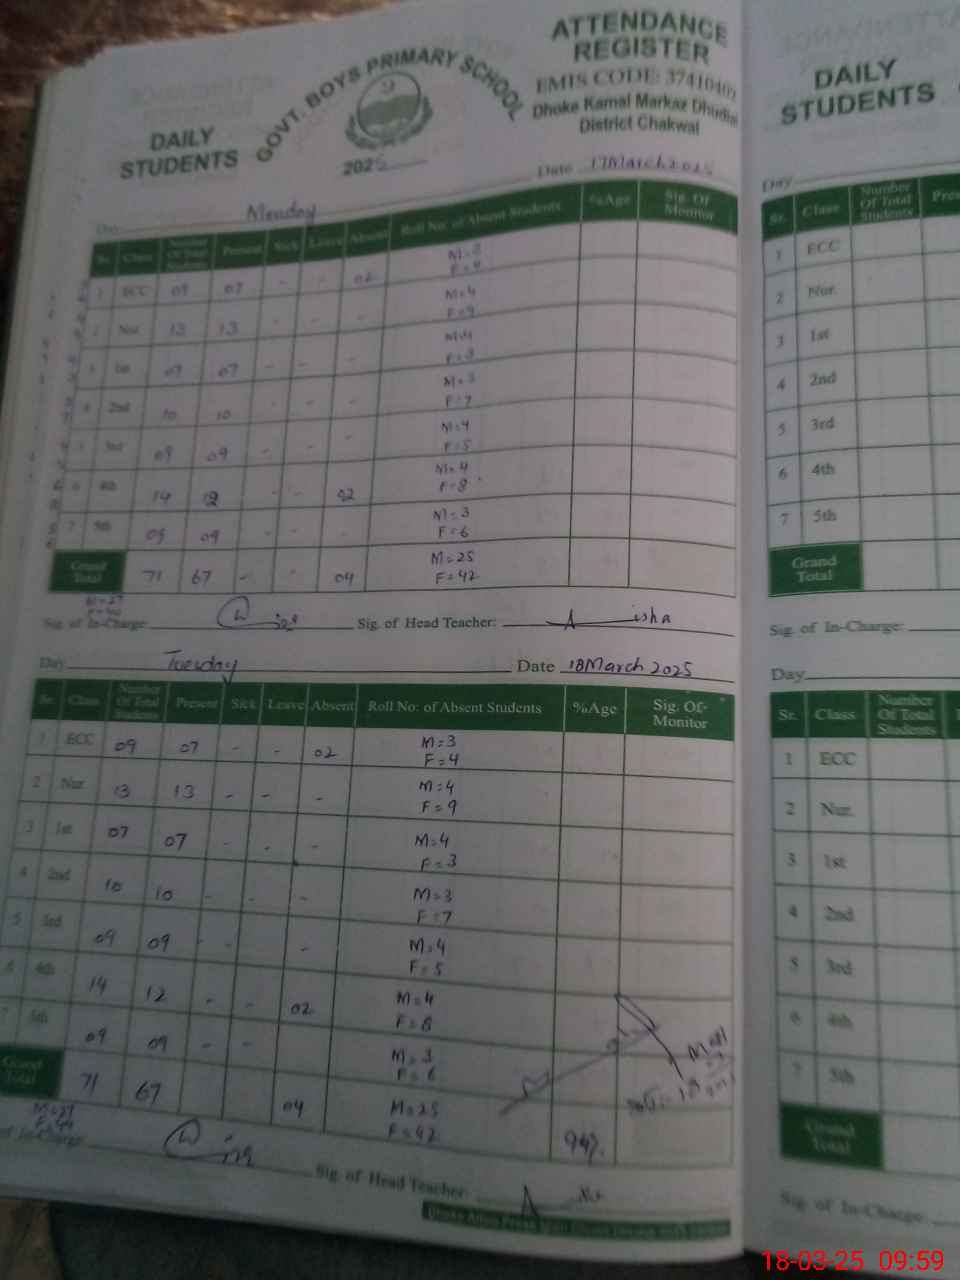 DAILY
STUDENTS
GOVT. BOYS PRIMARY SCHOOL
2025
ATTENDANCE
REGISTER
EMIS CODE: 37410402
Dhoke Kamal Markaz Dhudial
District Chakwal
Day Monday Date 17March2025
Sr. Class Number Of Total Students Present Sick Leave Absent Roll No: of Absent Students %Age Sig. Of Monitor
1 ECC 09 07 - - 02 M=3 F=4
2 Nur. 13 13 - - - M=4 F=9
3 1st 07 07 - - - M=4 F=3
4 2nd 10 10 - - - M=3 F=7
5 3rd 09 09 - - - M=4 F=5
6 4th 14 12 - - 02 M=4 F=8
7 5th 09 09 - - - M=3 F=6
Grand Total 71 67 - - 04 M=25 F=42
M=27
F=44
Sig. of In-Charge: Sig. of Head Teacher: Aisha
Day Tuesday Date 18March 2025
Sr. Class Number Of Total Students Present Sick Leave Absent Roll No: of Absent Students %Age Sig. Of Monitor
1 ECC 09 07 - - 02 M=3 F=4
2 Nur. 13 13 - - - M=4 F=9
3 1st 07 07 - - - M=4 F=3
4 2nd 10 10 - - - M=3 F=7
5 3rd 09 09 - - - M=4 F=5
6 4th 14 12 - - 02 M=4 F=8
7 5th 09 09 - - M=3 F=6
Grand Total 71 67 04 M=25 F=42 94%
M=27
F=44
of In-Charge: Sig. of Head Teacher:
DAILY
STUDENTS
Day
Sr. Class Number Of Total Students
1 ECC
2 Nur.
3 1st
4 2nd
5 3rd
6 4th
7 5th
Grand Total
Sig. of In-Charge:
Day
Sr. Class Number Of Total Students
1 ECC
2 Nur.
3 1st
4 2nd
5 3rd
6 4th
7 5th
Grand Total
Sig. of In-Charge:
18-03-25 09:59